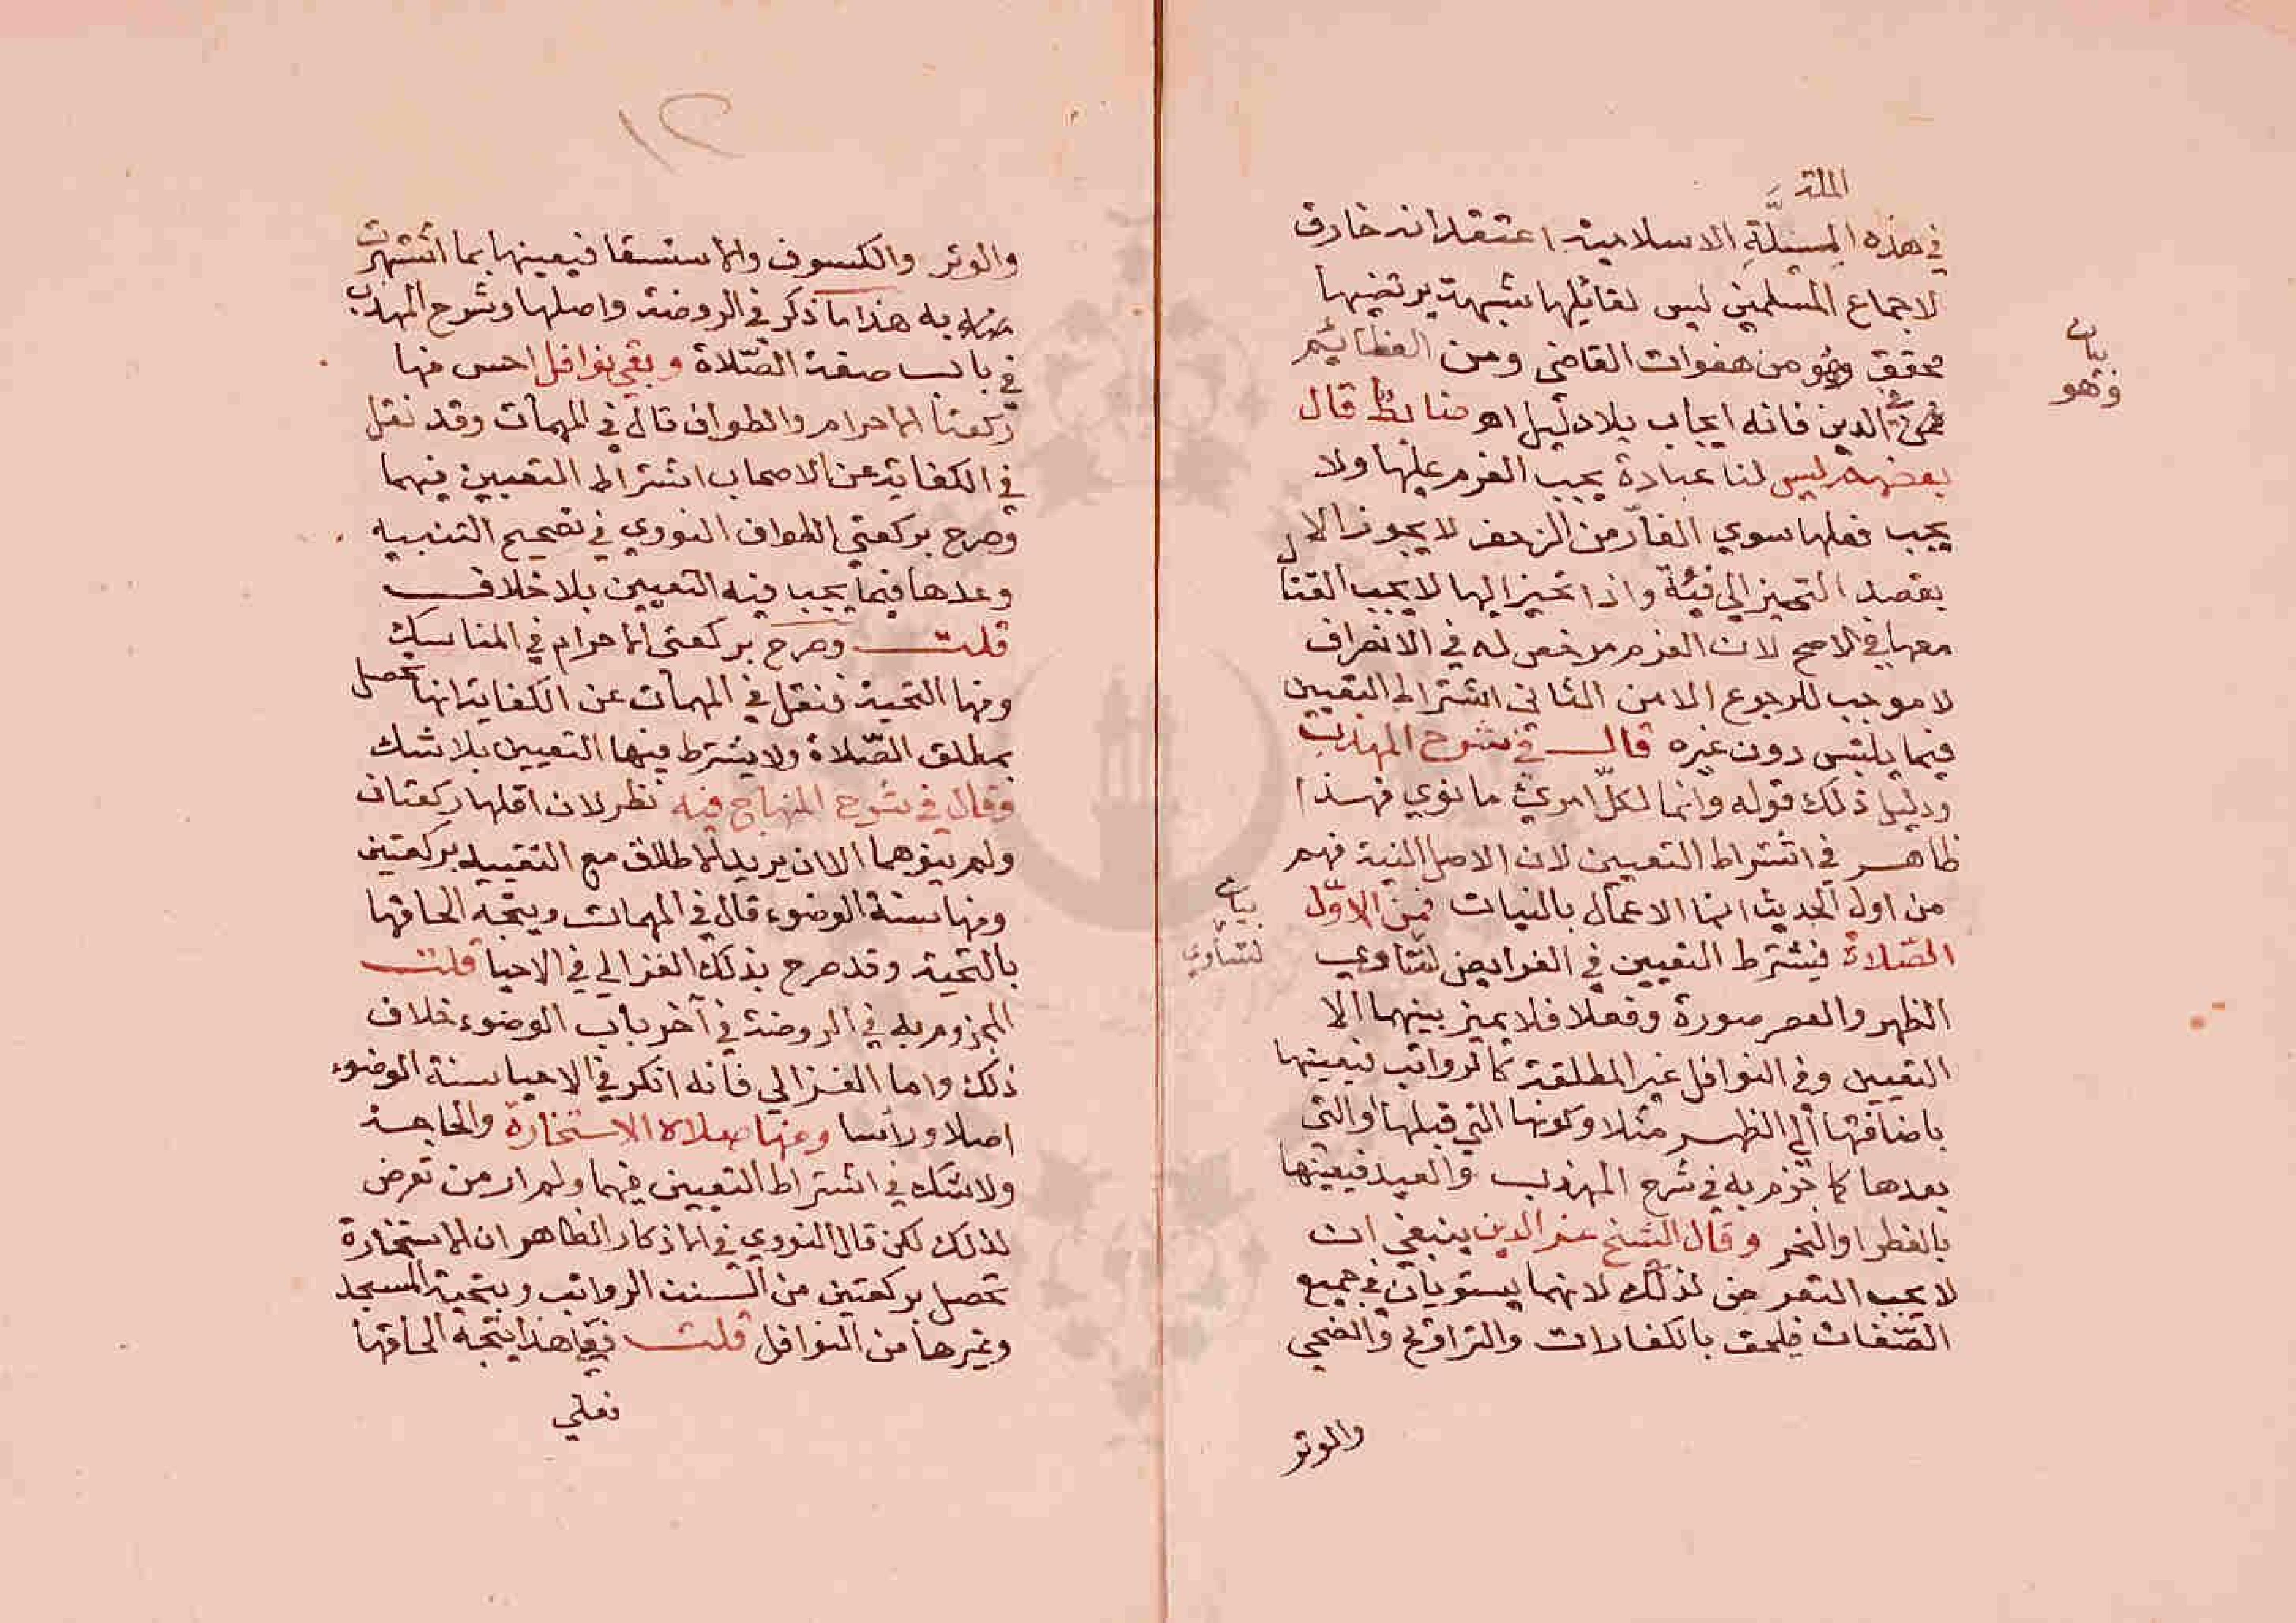 الملة
في هذه المسئلة الاسلامية اعتقد انه خارق
لاجماع المسلمين ليس لقائلها شبهة يرتضيها
محقق وهو من هفوات القاضي ومن العظائم
في الدين فانه ايجاب بلا دليل اهو ضابط قال
بعضهم ليس لنا عبادة يجب العزم عليها ولا
يجب فعلها سوي الفار من الزحف لا يجوز الا
بقصد التحيز الي فئة واذا تحيز اليها لا يجب القتال
معها في الاصح لان العزم مرخص له في الانصراف
لا موجب للرجوع الامر الثاني اشتراط التعيين
فيما يلتبس دون غيره قال في شرح المهذب
ودليل ذلك قوله وانما لكل امريء ما نوي فهذا
ظاهر في اشتراط التعيين لان الاصل النية فهم
من اول الحديث انما الاعمال بالنيات فمن الاول
الصلاة فيشترط التعيين في الفرايض لتساوي
الظهر والعصر صورة وفعلا فلا يميز بينهما الا
التعيين وفي النوافل غير المطلقة كالرواتب فيعينها
باضافتها الي الظهر مثلا وكونها التي قبلها او التي
بعدها كما جزم به في شرح المهذب والعيد فيعينها
بالفطر او النحر وقال الشيخ عز الدين ينبغي ان
لا يجب التعرض لذلك لانهما يستويان في جميع
الصفات فيلحق بالكفارات والتراويح والضحي
والوتر
بيان
وهو
بيان
لتساوي
١٢
والوتر والكسوف والاستسقا فيعينها بما اشتهرت
به هذا ما ذكر في الروضة واصلها وشرح المهذب
في باب صفة الصلاة وبقي نوافل اخر منها
ركعتا الاحرام والطواف قال في المهمات وقد نقل
في الكفاية عن الاصحاب اشتراط التعيين فيهما
وصرح بركعتي الطواف النووي في تصحيح التنبيه
وعدها فيما يجب فيه التعيين بلا خلاف
قلت وصرح بركعتي الاحرام في المناسك
ومنها التحية فنقل في المهمات عن الكفاية انها تحصل
بمطلق الصلاة ولا يشترط فيها التعيين بلا شك
وقال في شرح المنهاج فيه نظر لان اقلها ركعتان
ولم ينوهما الا ان يريد الاطلاق مع التقييد بركعتين
ومنها سنة الوضوء قال في المهمات ويتجه الحاقها
بالتحية وقد صرح بذلك الغزالي في الاحيا قلت
المجزوم به في الروضة في آخر باب الوضوء خلاف
ذلك واما الغزالي فانه انكر في الاحيا سنة الوضوء
اصلا وراسا ومنها صلاة الاستخارة والحاجة
ولا شك في اشتراط التعيين فيهما ولم ار من تعرض
لذلك لكن قال النووي في الاذكار الظاهر ان الاستخارة
تحصل بركعتين من السنن الرواتب وبتحية المسجد
وغيرها من النوافل قلت فعلي هذا يتجه الحاقها
فعلي